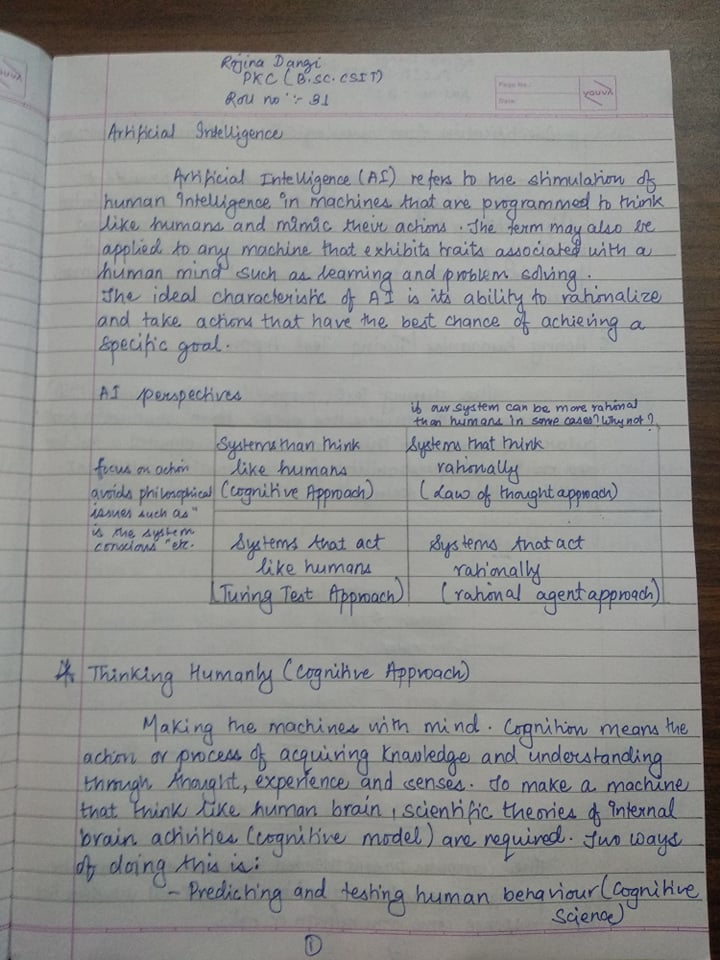 Rojina Dangi
PKC (B.SC.CSIT)
Roll no :- 31
Page No.:
Date:
youva
Artificial Intelligence
Artificial Intelligence (AI) refers to the stimulation of
human intelligence in machines that are programmed to think
like humans and mimic their actions. The term may also be
applied to any machine that exhibits traits associated with a
human mind such as learning and problem solving.
The ideal characteristic of AI is its ability to rationalize
and take actions that have the best chance of achieving a
specific goal.
AI perspectives
is our system can be more rational
than humans in some cases? Why not?
Systems than think
like humans
(Cognitive Approach)
Systems that think
rationally
(Law of thought approach)
focus on action
avoids philosophical
issues such as "
is the system
conscious" etc.
Systems that act
like humans
(Turing Test Approach)
Systems that act
rationally
(rational agent approach)
* Thinking Humanly (Cognitive Approach)
Making the machines with mind. Cognition means the
action or process of acquiring knowledge and understanding
through thought, experience and senses. To make a machine
that think like human brain, scientific theories of internal
brain activities (cognitive model) are required. Two ways
of doing this is:
- Predicting and testing human behaviour (Cognitive
Science)
1